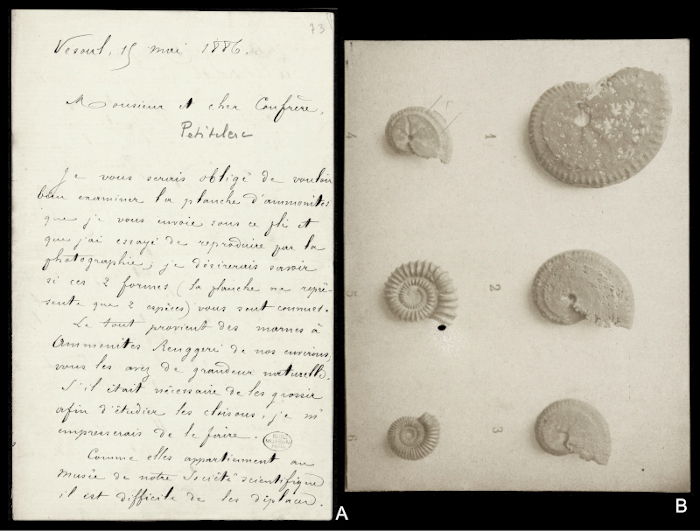 73
Vesoul, 15 mai 1886.
Monsieur et cher Confrère,
Petitclerc
Je vous serais obligé de vouloir
bien examiner la planche d'ammonites
que je vous envoie sous ce pli et
que j'ai essayé de reproduire par la
photographie; je désirerais savoir
si ces 2 formes (la planche ne repré-
sente que 2 espèces) vous sont connues.
Le tout provient des marnes à
Ammonites Renggeri de nos environs,
vous les avez de grandeur naturelle.
S'il était nécessaire de les grossir
afin d'étudier les cloisons, je m'
empresserais de le faire.
Comme elles appartiennent au
musée de notre Société scientifique
il est difficile de les déplacer.
A
4
1
5
2
6
3
B